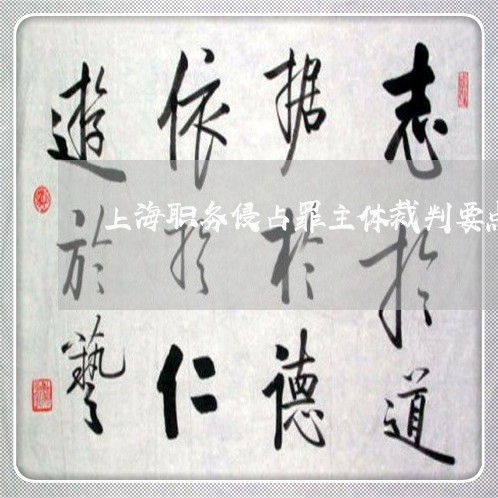 志於道
据於德
依於仁
遊於藝
上海职务侵占罪主体裁判要点